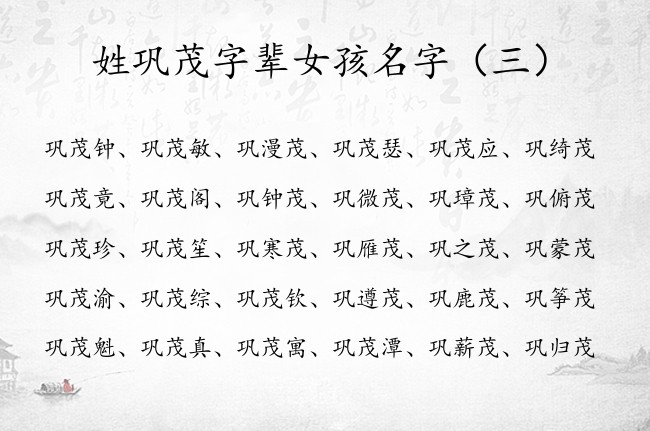 姓巩茂字辈女孩名字（三）
巩茂钟、巩茂敏、巩漫茂、巩茂瑟、巩茂应、巩绮茂
巩茂竟、巩茂阁、巩钟茂、巩微茂、巩璋茂、巩俯茂
巩茂珍、巩茂笙、巩寒茂、巩雁茂、巩之茂、巩蒙茂
巩茂渝、巩茂综、巩茂钦、巩遵茂、巩鹿茂、巩筝茂
巩茂魁、巩茂真、巩茂寓、巩茂潭、巩薪茂、巩归茂